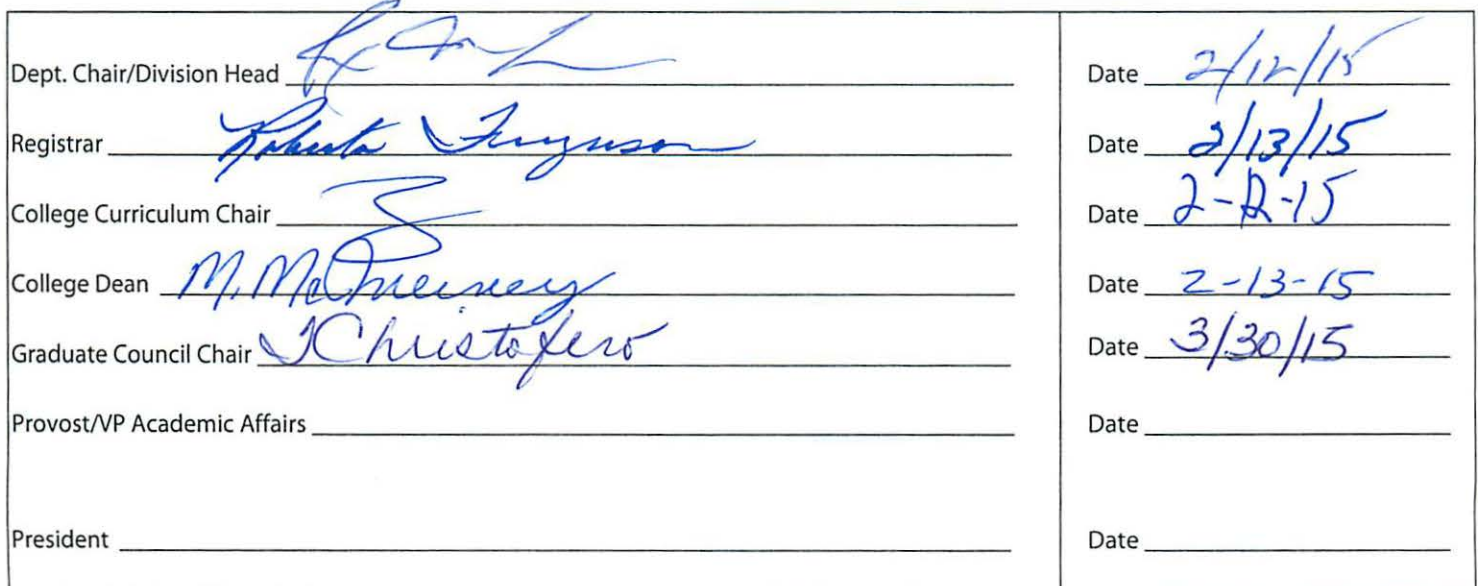 Dept. Chair/Division Head Date 2/12/15
Registrar Roberta Ferguson Date 2/13/15
College Curriculum Chair Date 2-12-15
College Dean M. Date 2-13-15
Graduate Council Chair TChristofero Date 3/30/15
Provost/VP Academic Affairs Date
President Date